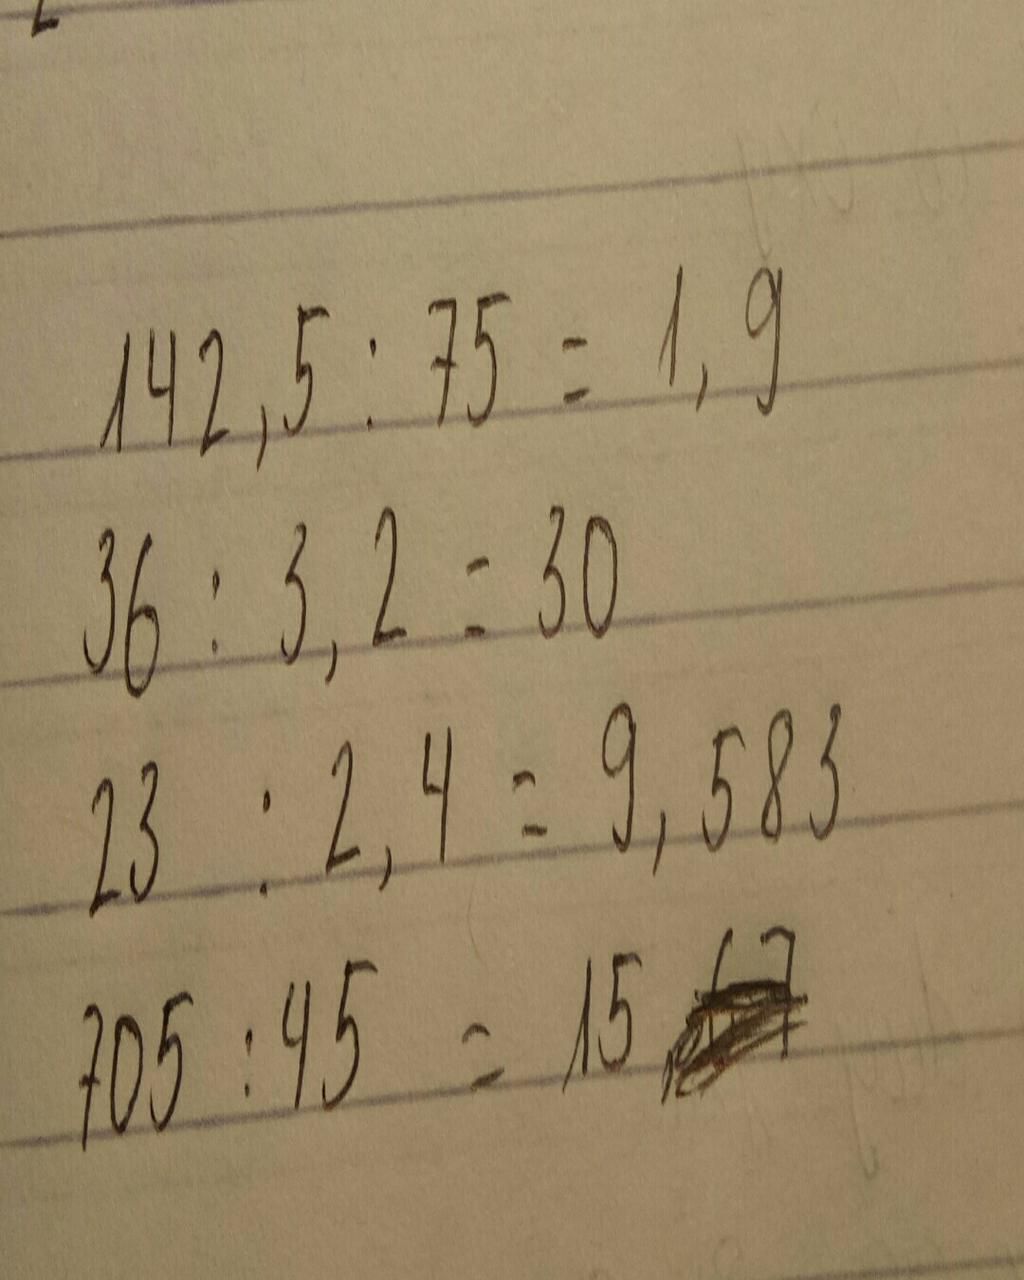 142,5 : 75 = 1,9
36 : 3,2 = 30
23 : 2,4 = 9,583
705 : 45 = 15